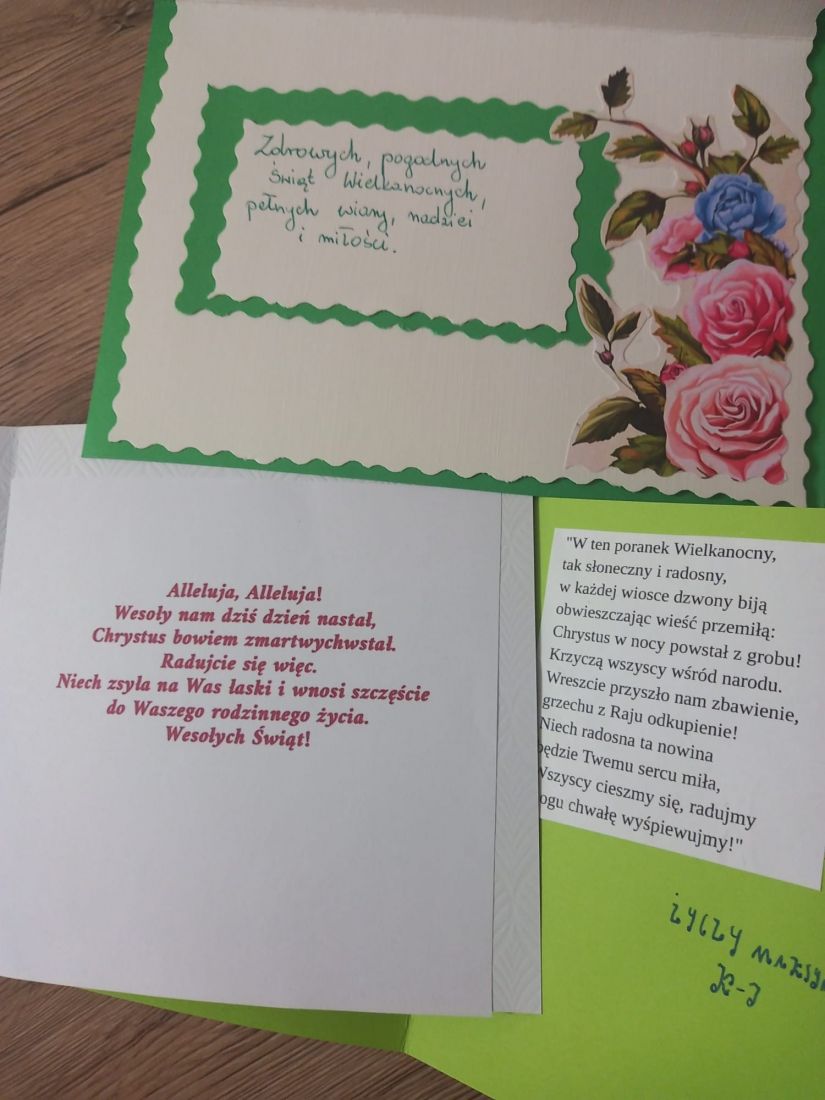 Zdrowych, pogodnych
Świąt Wielkanocnych,
pełnych wiary, nadziei
i miłości.
Alleluja, Alleluja!
Wesoły nam dziś dzień nastał,
Chrystus bowiem zmartwychwstał.
Radujcie się więc.
Niech zsyła na Was łaski i wnosi szczęście
do Waszego rodzinnego życia.
Wesołych Świąt!
"W ten poranek Wielkanocny,
tak słoneczny i radosny,
w każdej wiosce dzwony biją
obwieszczając wieść przemiłą:
Chrystus w nocy powstał z grobu!
Krzyczą wszyscy wśród narodu.
Wreszcie przyszło nam zbawienie,
grzechu z Raju odkupienie!
Niech radosna ta nowina
będzie Twemu sercu miła,
Wszyscy cieszmy się, radujmy
ogu chwałę wyśpiewujmy!"
życzy
K-J